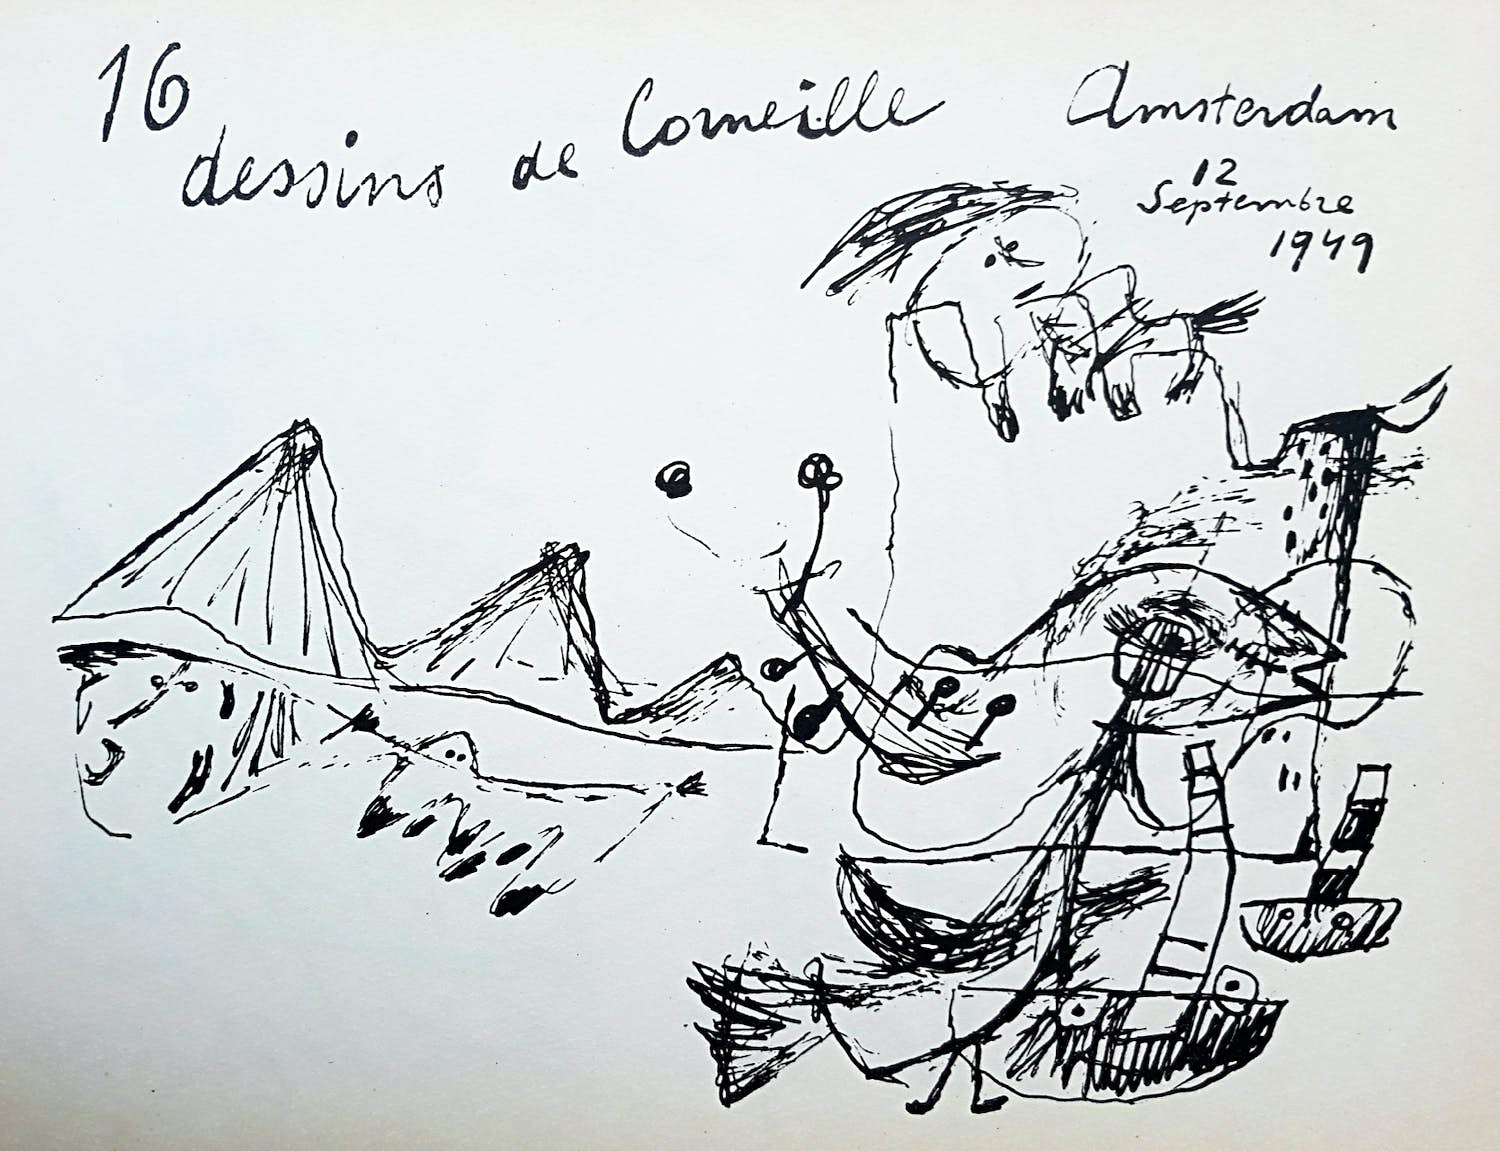 16
dessins de Corneille
Amsterdam
12
Septembre
1949